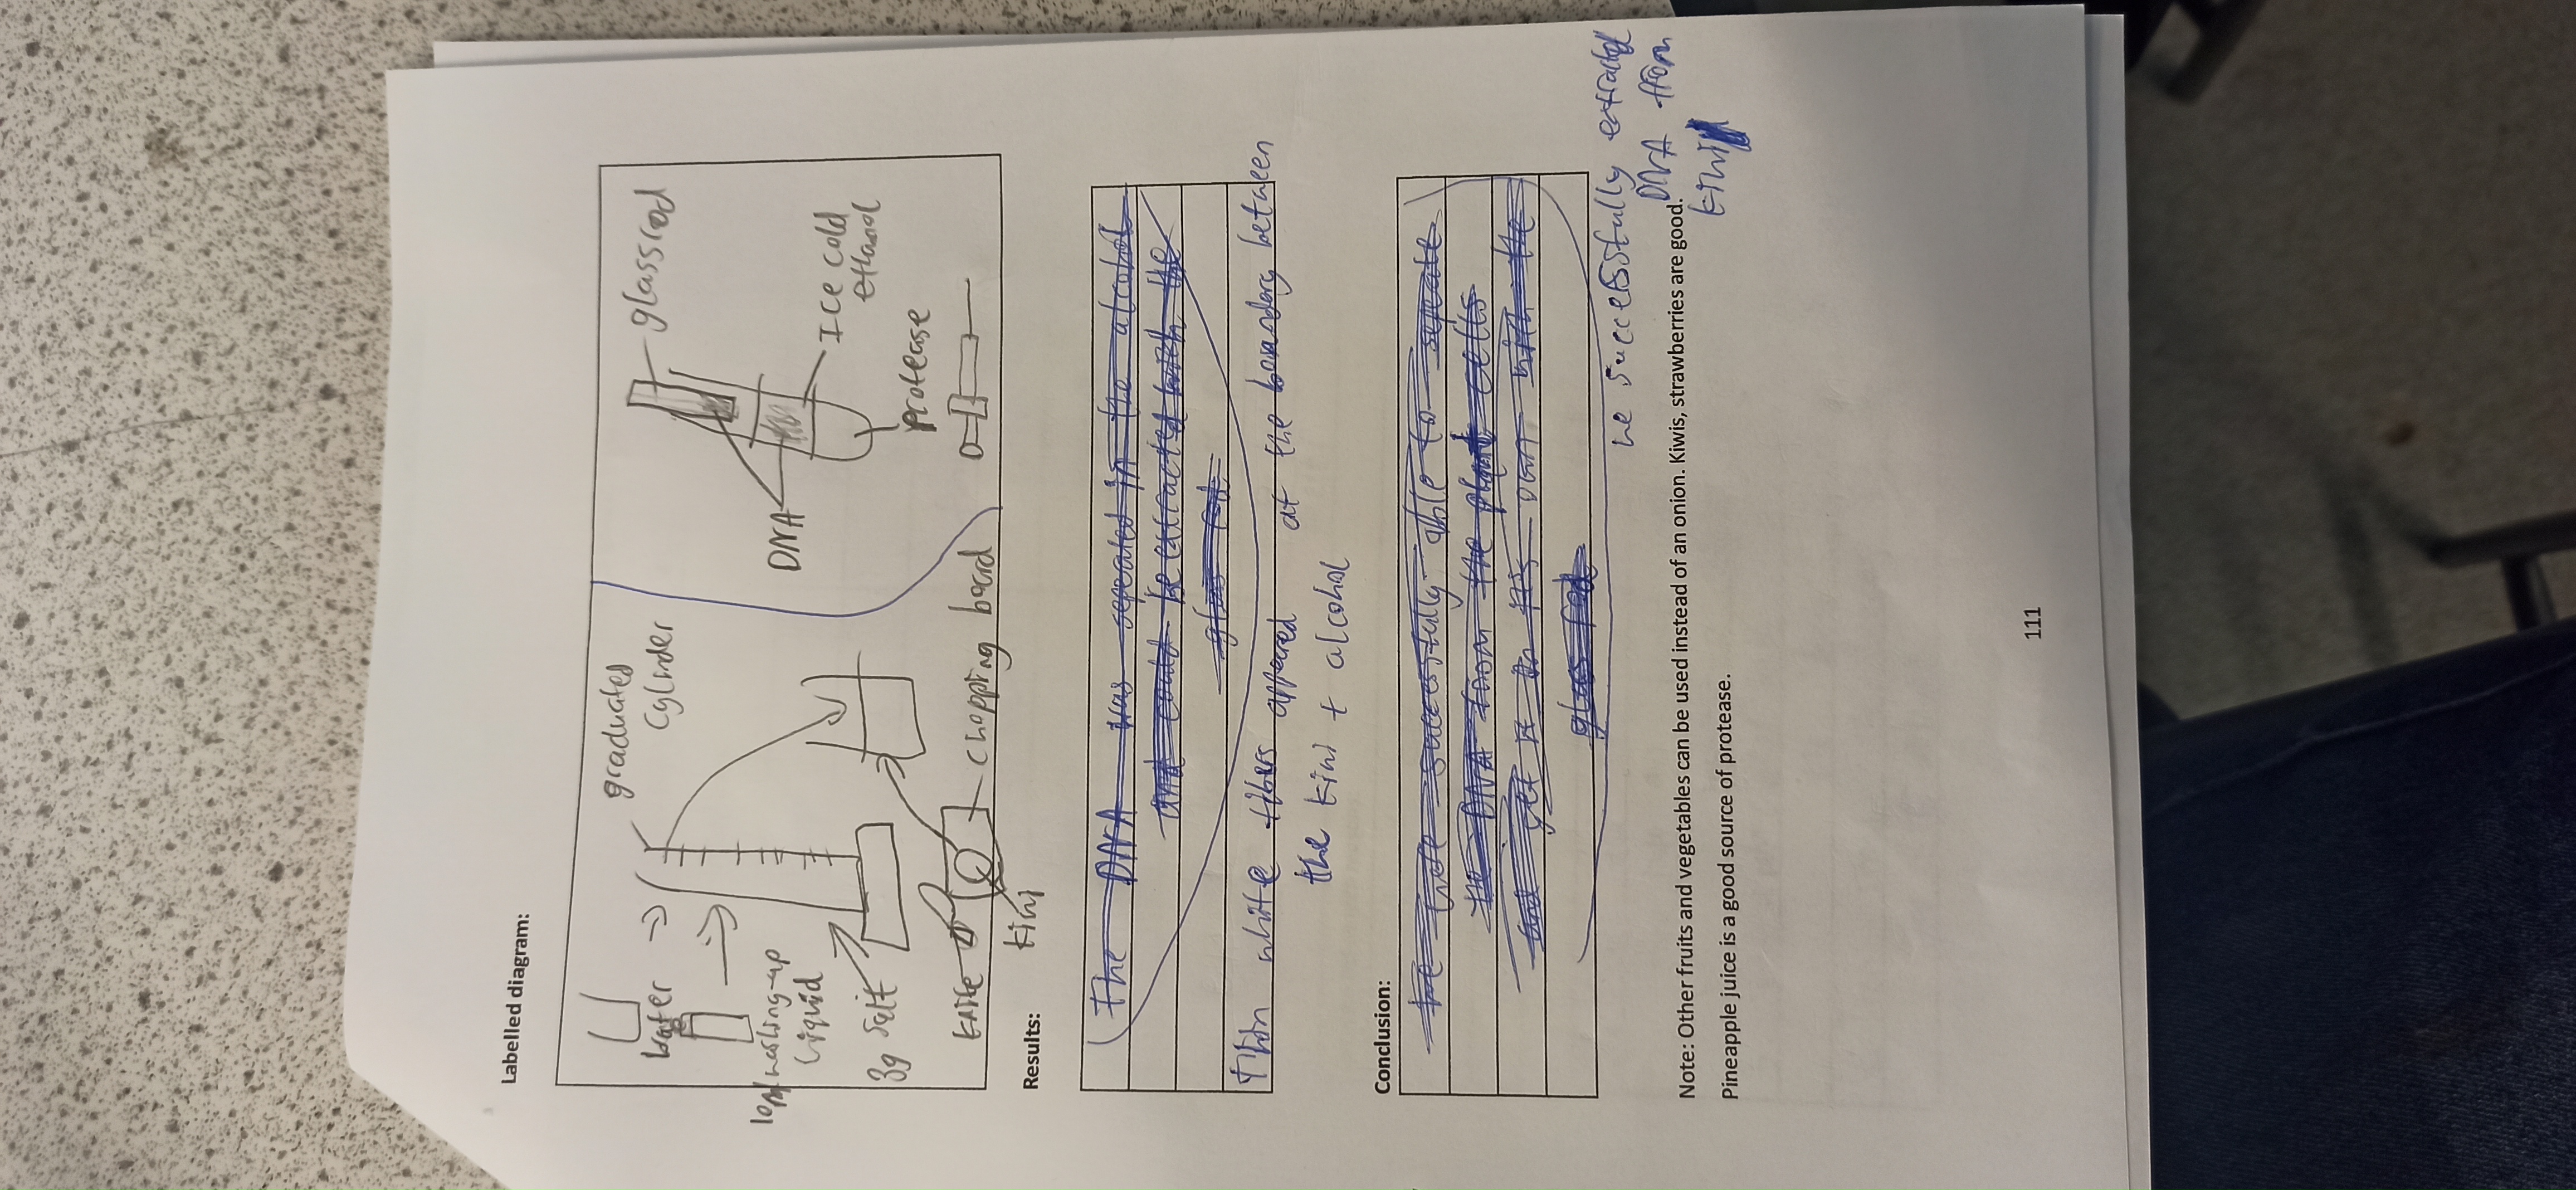 Labelled diagram:
graduated
cylinder
water
washing-up
liquid
3g salt
knife
kiwi
chopping board
glassrod
DNA
Ice cold
ethanol
protease
Results:
The DNA was seperated in the alcohol
and could be extracted with the
glass rod
Thin white fibers appeared at the boundary between
the kiwi + alcohol
Conclusion:
We were successfully able to seperate
the DNA from the plant cells
and get it on its own with the
glass rod
we successfully extracted
DNA from
kiwi
Note: Other fruits and vegetables can be used instead of an onion. Kiwis, strawberries are good.
Pineapple juice is a good source of protease.
111